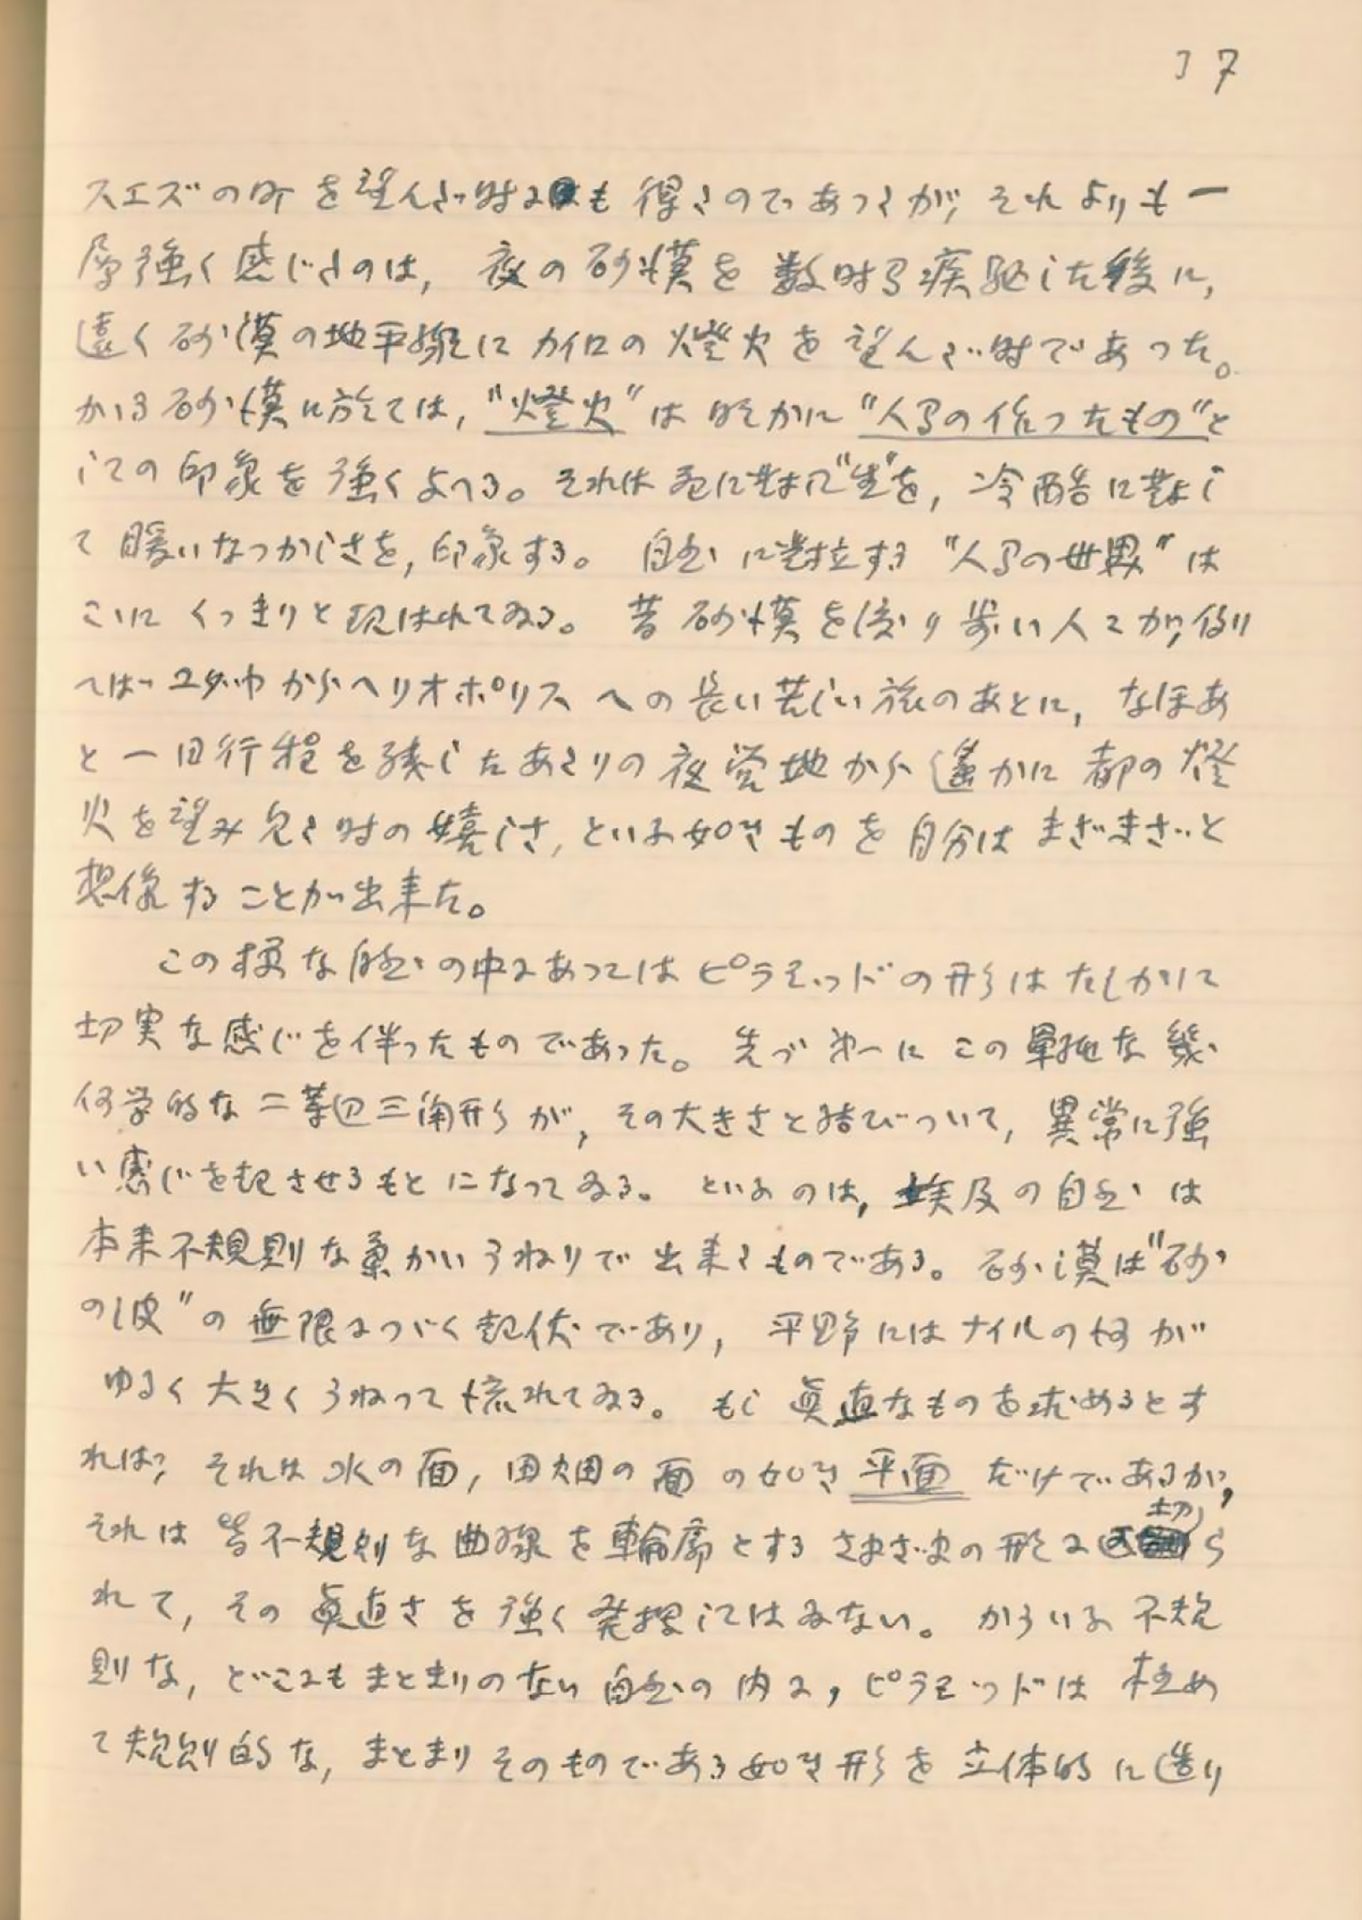 17
スエズの町を望んだ時にも得たのであつたが、それよりも一
層強く感じたのは, 夜の砂漠を数時間疾駆した後に,
遠く砂漠の地平線にカイロの燈火を望んだ時であつた。
かゝる砂漠に於ては, "燈火"は明かに"人間の作つたもの"と
しての印象を強く与へる。それは死に対して"生"を, 冷酷に対し
て暖いなつかしさを, 印象する。自然に対立する"人間の世界"は
こゝにくつきりと現はれてゐる。昔砂漠を渡り歩い人々が, 例
へばユダヤからヘリオポリスへの長い苦しい旅のあとに, なほあ
と一日行程を残したあたりの夜営地から遙かに都の燈
火を望み見た時の嬉しさ, といふ如きものを自分はまざまざと
想像することが出来た。
この様な自然の中にあつてはピラミッドの形はたしかに
切実な感じを伴つたものであつた。先づ第一にこの単純な幾
何学的な二等辺三角形が, その大きさと結びついて, 異常に強
い感じを起させるもとになつてゐる。といふのは, 埃及の自然は
本来不規則な柔かいうねりで出来たものである。砂漠は"砂
の波"の無限につゞく起伏であり, 平野にはナイルの河が
ゆるく大きくうねつて流れてゐる。もし眞直なものを求めるとす
れば, それは水の面, 田畑の面の如き平面だけであるが,
それは皆不規則な曲線を輪廓とするさまざまの形に切ら
れて, その眞直さを強く発揮してはゐない。かういふ不規
則な, どこにもまとまりのない自然の内に, ピラミッドは極め
て規則的な, まとまりそのものである如き形を立体的に造り